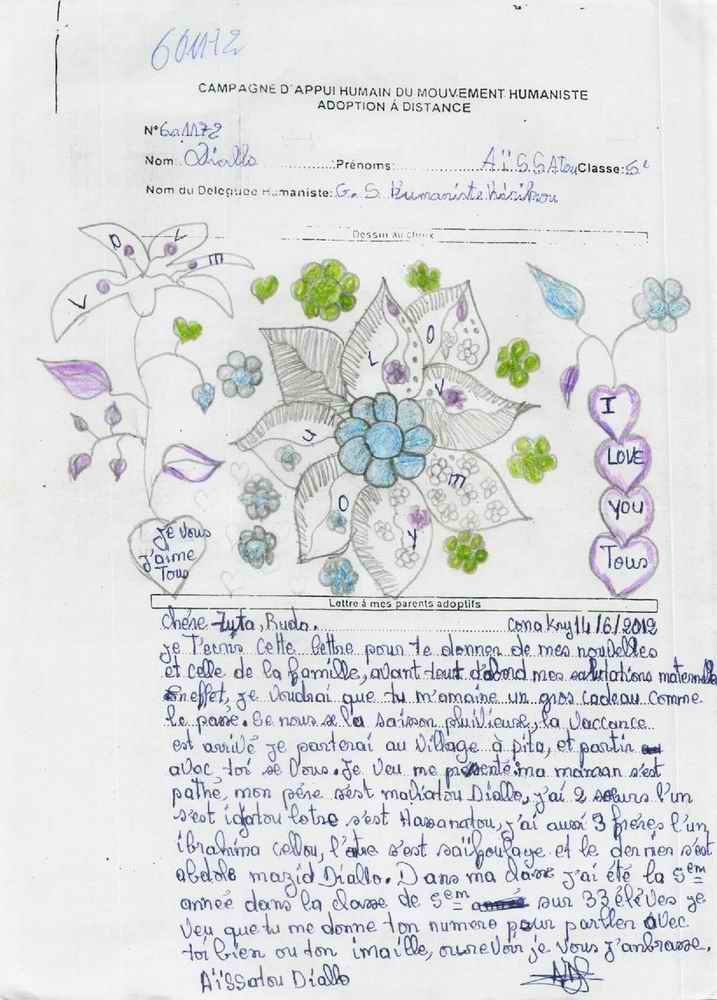 601172
CAMPAGNE D'APPUI HUMAIN DU MOUVEMENT HUMANISTE
ADOPTION Á DISTANCE
N° 601172
Nom: Diallo Prénoms: AÏSSATou Classe: 5e
Nom du Deleguée Humaniste: G. S. Humaniste
Dessin au choix
L O V E
L O V E
J O Y
I
LOVE
YOU
Tous
Je vous
j'aime
Tous
Lettre à mes parents adoptifs
Chére Zyta, Rudo. conakry 14/6/2012
je T'ecris cette lettre pour te donner de mes nouvelles
et celle de la famille, avant tout d'abord mes salutations maternelle
en effet, je voudrai que tu m'amaine un gros cadeau comme
le passe. Ce nous se la saison pluivieuse, la vaccance
est arrivé je parterai au village à pita, et partir
avac toi se vous. Je veu me presenté ma maman s'est
pathé, mon pére s'est Diallo, j'ai 2 sœurs l'un
s'est idjatou lotre s'est Assanatou, j'ai aussi 3 fréres l'un
ibrahima cellou, l'otre s'est saïfoulaye et le dernier s'est
abdole mazid Diallo. Dans ma classe j'ai été la 5em
année dans la classe de 5em sur 33 éléves je
veu que tu me donne ton numero pour partler avec
toi bien ou ton imaille, ourevoir je vous j'anbrasse.
AïSSatou Diallo